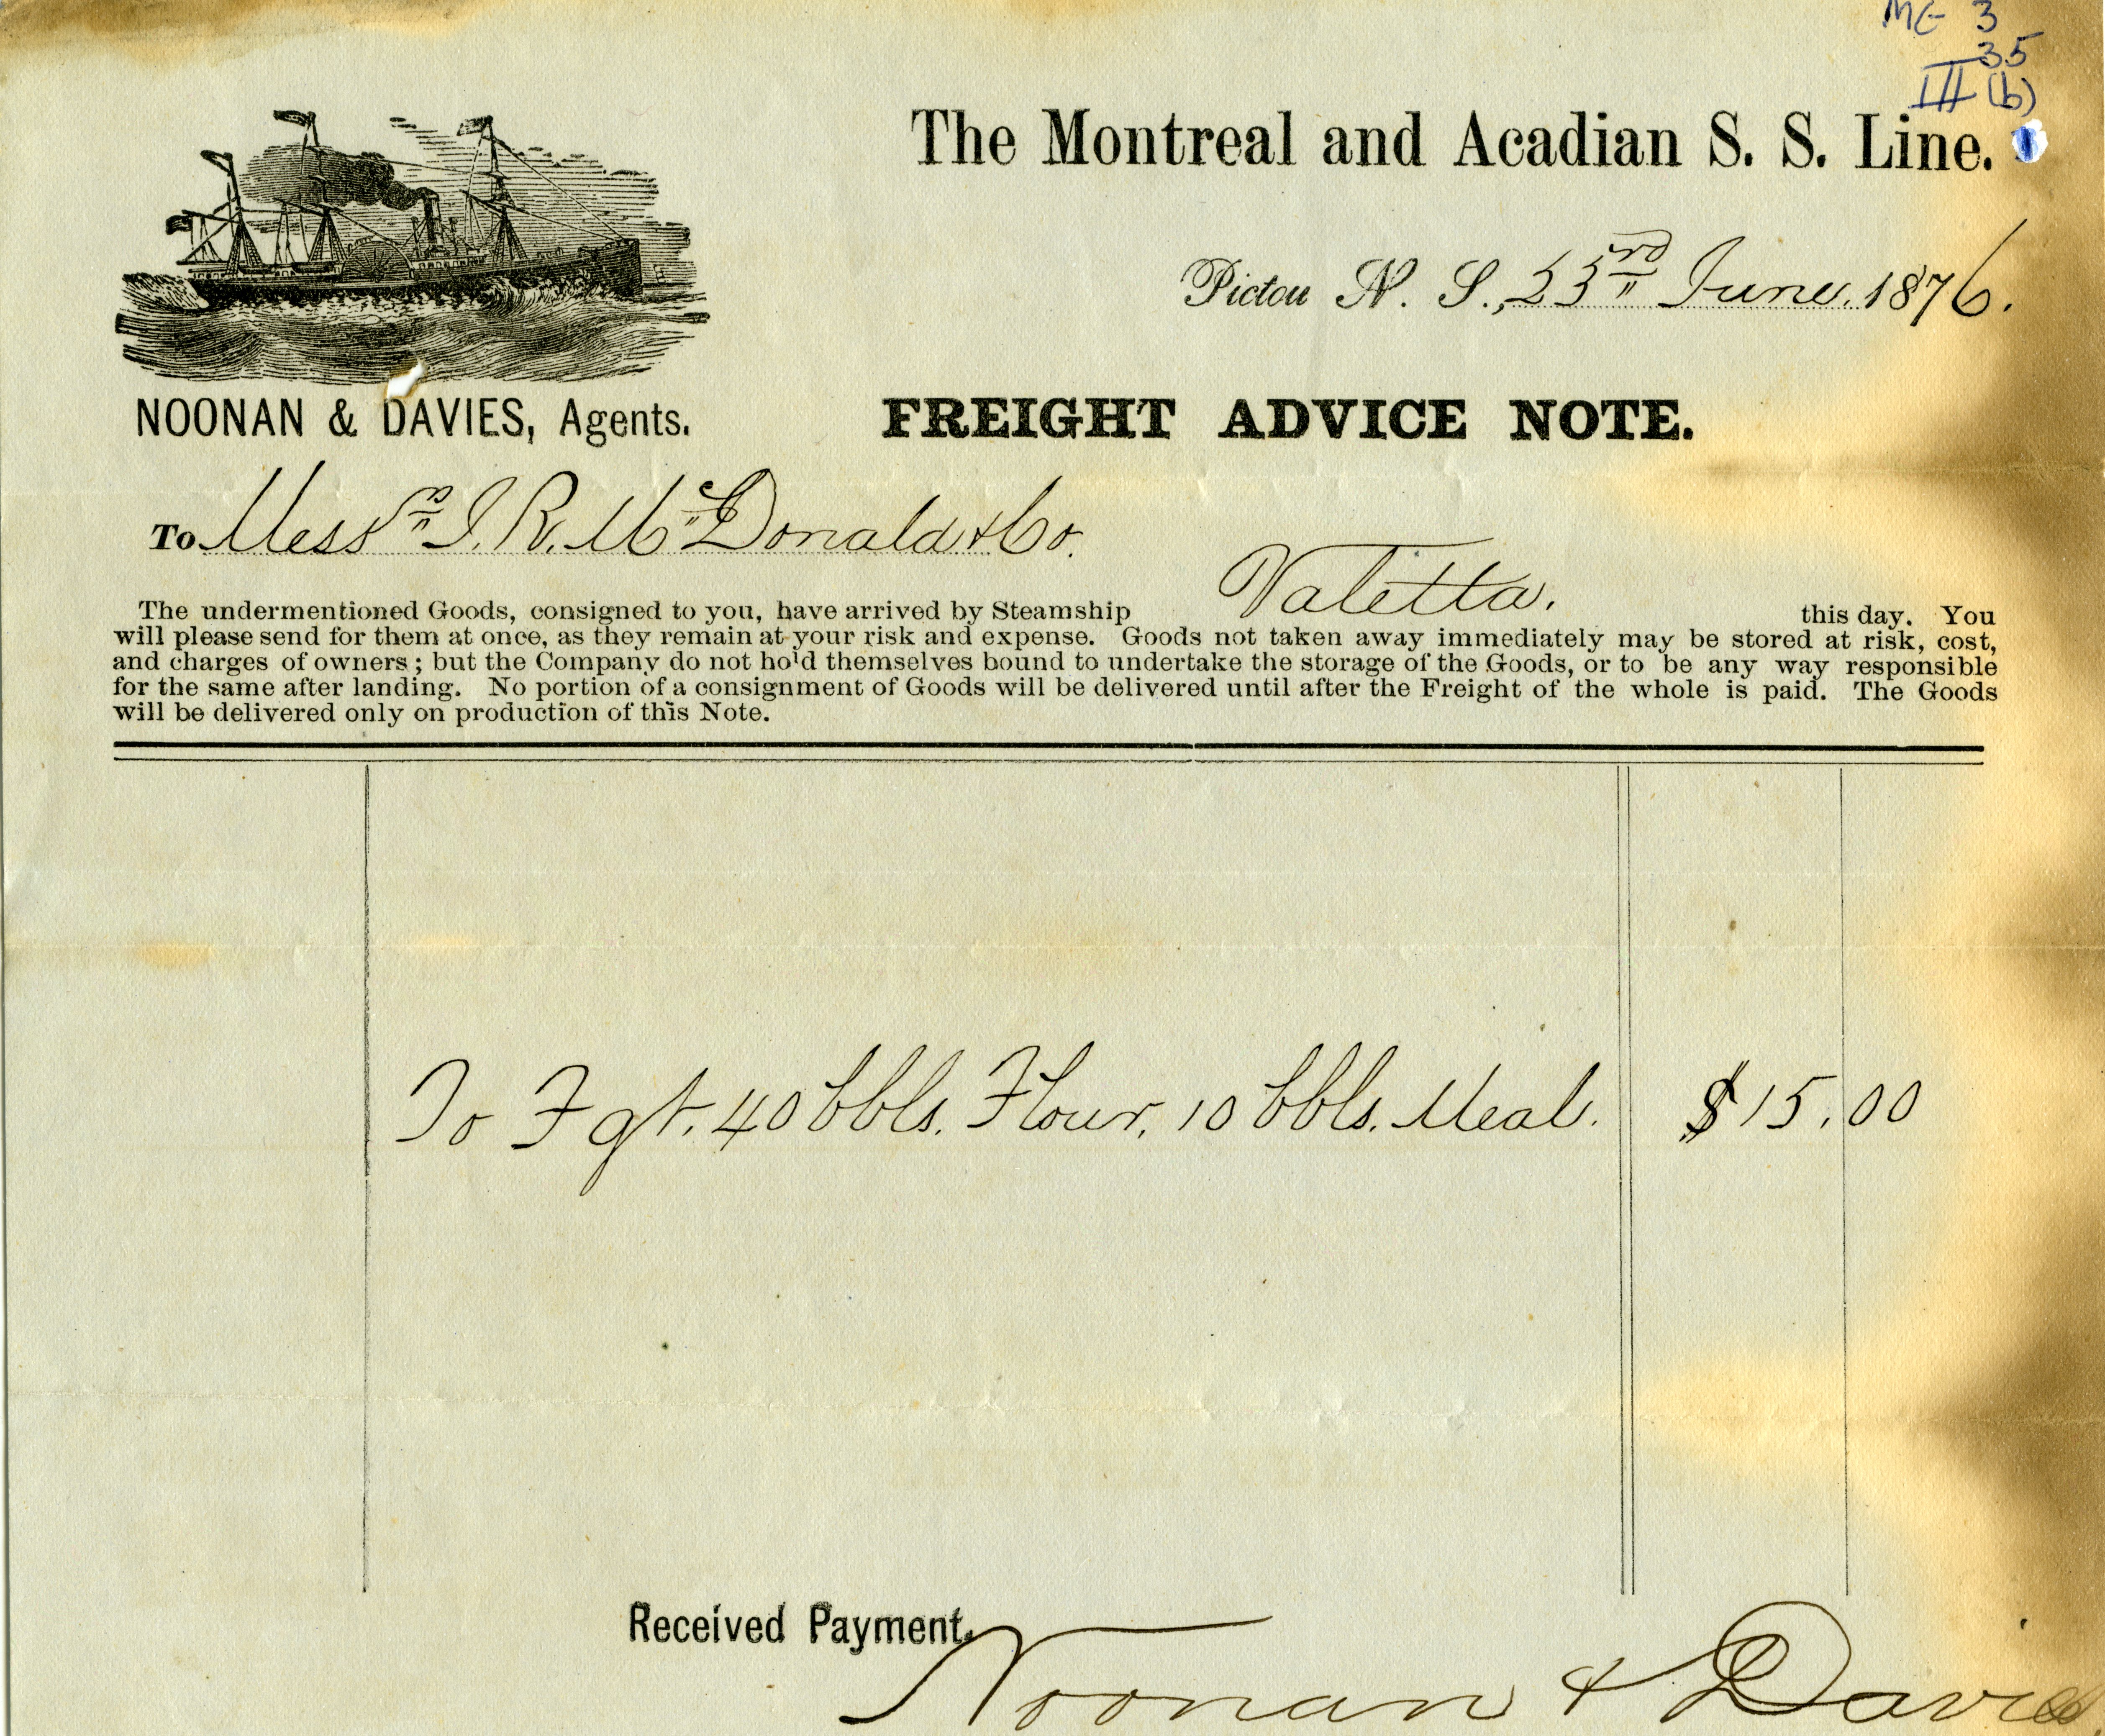 MG 3
35
III (b)
The Montreal and Acadian S. S. Line.
Pictou N. S., 23rd June 1876.
NOONAN & DAVIES, Agents.
FREIGHT ADVICE NOTE.
To Messrs I. R. McDonald & Co.
The undermentioned Goods, consigned to you, have arrived by Steamship Valetta. this day. You
will please send for them at once, as they remain at your risk and expense. Goods not taken away immediately may be stored at risk, cost,
and charges of owners; but the Company do not hold themselves bound to undertake the storage of the Goods, or to be any way responsible
for the same after landing. No portion of a consignment of Goods will be delivered until after the Freight of the whole is paid. The Goods
will be delivered only on production of this Note.
To Fgt. 40 bbls. Flour, 10 bbls. Meal. $15.00
Received Payment,
Noonan & Davies